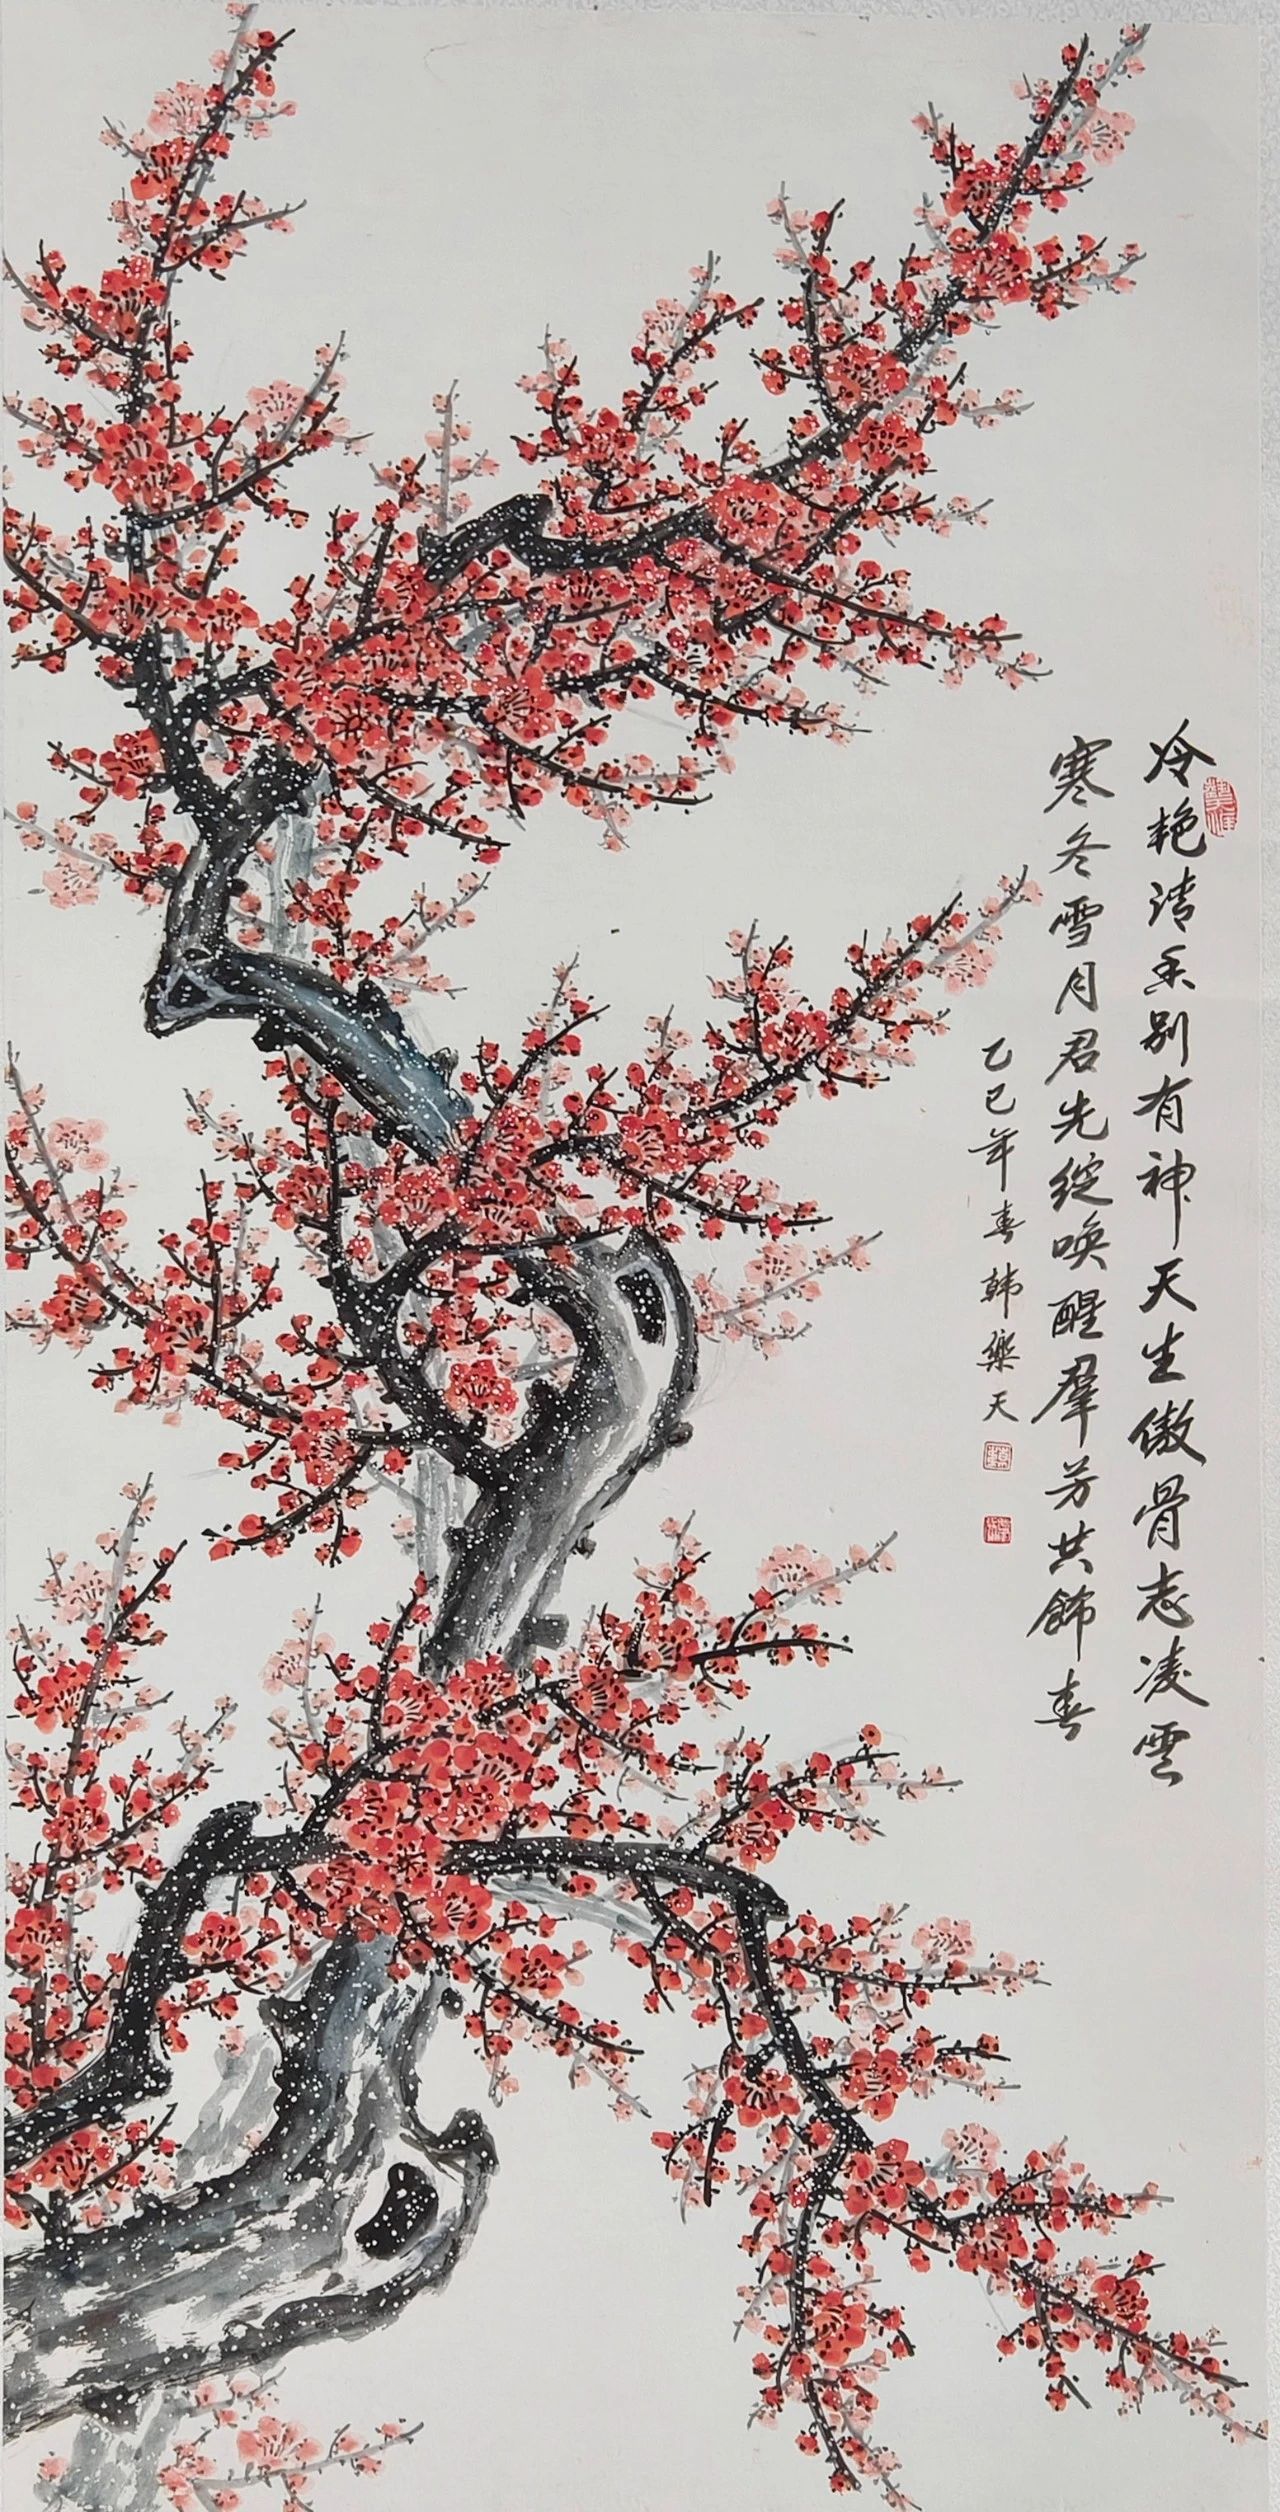 冷艳清香别有神天生傲骨志凌雲
寒冬雪月君先绽唤醒羣芳共飾春
乙巳年春韩樂天